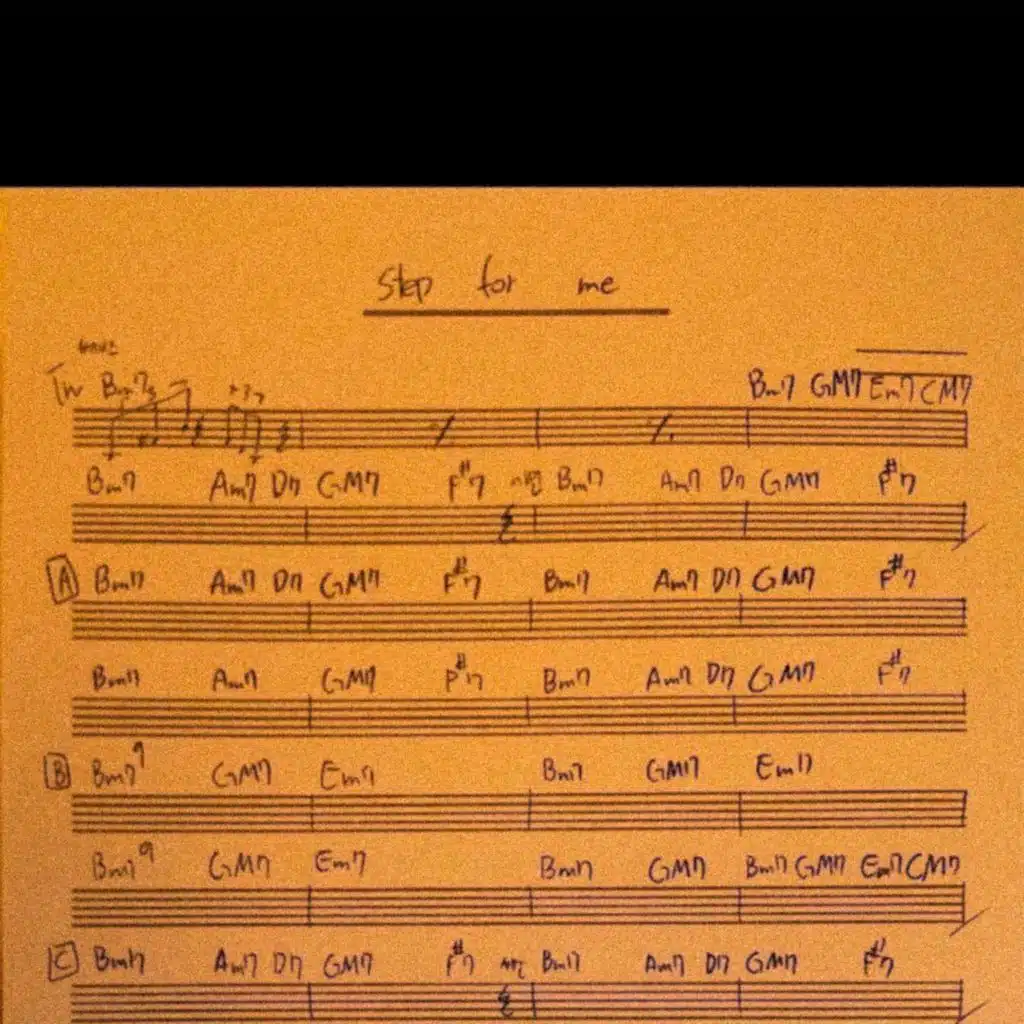 Step for me
In Bm7
Bm7 GM7 Em7 CM7
Bm7 Am7 D7 GM7 F#7 Bm7 Am7 D7 GM7 F#7
A Bm7 Am7 D7 GM7 F#7 Bm7 Am7 D7 GM7 F#7
Bm7 Am7 GM7 F#7 Bm7 Am7 D7 GM7 F#7
B Bm7 9 GM7 Em7 Bm7 GM7 Em7
Bm7 9 GM7 Em7 Bm7 GM7 Bm7 GM7 Em7 CM7
C Bm7 Am7 D7 GM7 F#7 Bm7 Am7 D7 GM7 F#7